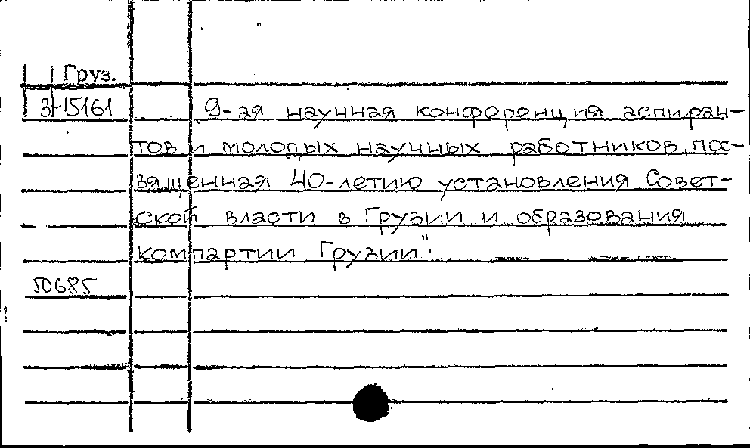 Груз.
3-15161 9-ая научная конференция аспиран-
тов и молодых научных работников, пос-
вященная 40-летию установления Совет-
ской власти в Грузии и образования
компартии Грузии".
50685